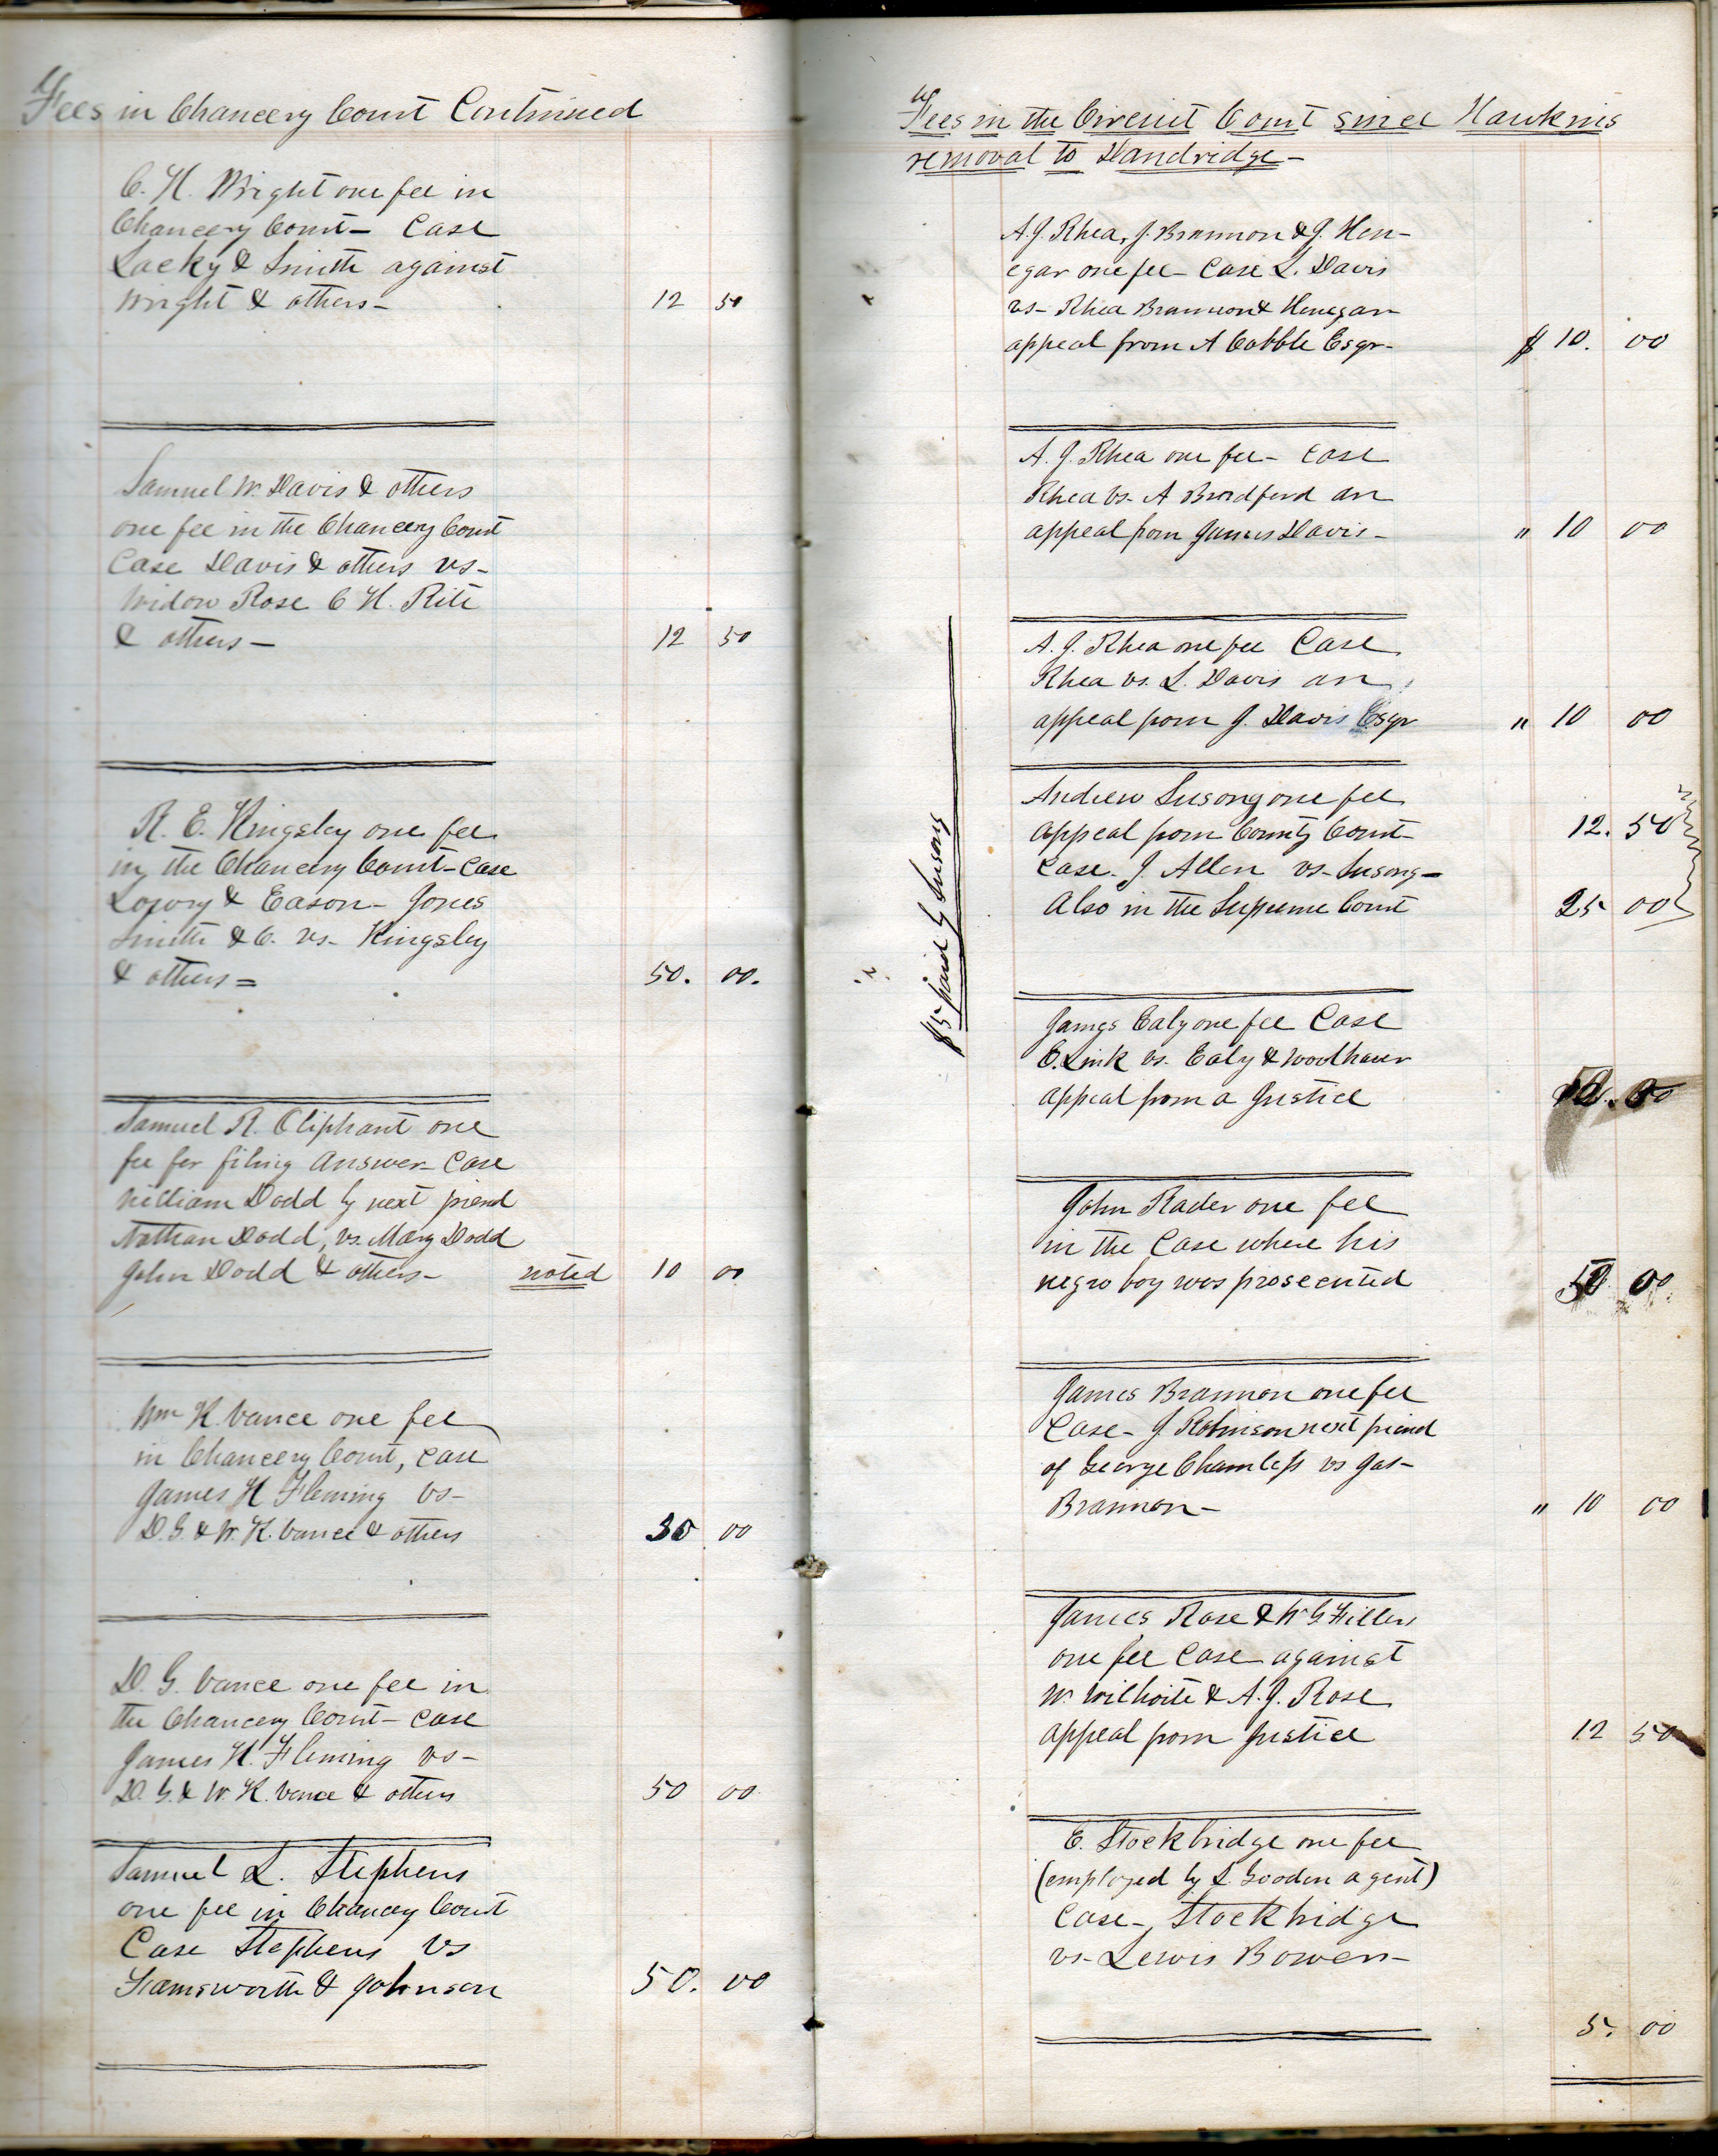 Fees in Chancery Court Continued
C. H. Wright one fee in
Chancery Court - Case
Lacky & Smith against
Wright & others - 12 50
Samuel W. Davis & others
one fee in the Chancery Court
Case Davis & others vs -
Widow Rose C H. Rite
& others - 12 50
R. E. Kingsley one fee
in the Chancery Court - Case
Lowry & Eason - Jones
Smith & C. vs - Kingsley
& others = 50. 00.
Samuel R. Oliphant one
fee for filing Answer - Case
William Dodd by next friend
Nathan Dodd, vs. Mary Dodd
John Dodd & others - noted 10 00
Wm K. Vance one fee
in Chancery Court, case
James H Fleming vs -
D. G. & W. K. Vance & others 00
D. G. Vance one fee in
the Chancery Court - case
James H. Fleming vs -
D. G. & W. K. Vance & others 50 00
Samuel L. Stephens
one fee in Chancery Court
Case Stephens vs
& Johnson 50. 00
Fees in the Circuit Court since Hawkins
removal to Dandridge -
A. J. Rhea, J. Brannon & J. Hen-
egar one fee - Case L. Davis
vs - Rhea Brannon & Henegar
appeal from A Cobble Esqr - $ 10. 00
A. J. Rhea one fee - case
Rhea vs. A Bradford an
appeal from James Davis - " 10 00
A. J. Rhea one fee Case
Rhea vs. L. Davis an
appeal from J. Davis Esqr " 10 00
$5 paid by Susong
Andrew Susong one fee
appeal from County Court 12. 50
Case - J. Allen vs - Susong -
Also in the Supreme Court 25 00
James Ealy one fee Case
E. Link vs. Ealy & Woolhaver
appeal from a Justice
John Rader one fee
in the Case where his
negro boy was prosecuted 00
James Brannon one fee
Case - J Robinson next friend
of George Chamless vs Jas -
Brannon - " 10 00
James Rose & W G Fillers
one fee Case against
W. Wilhoite & A. J. Rose
appeal from Justice 12 50
E. Stockbridge one fee
(employed by S. Gooden agent)
Case - Stockbridge
vs - Lewis Bowers -
5. 00